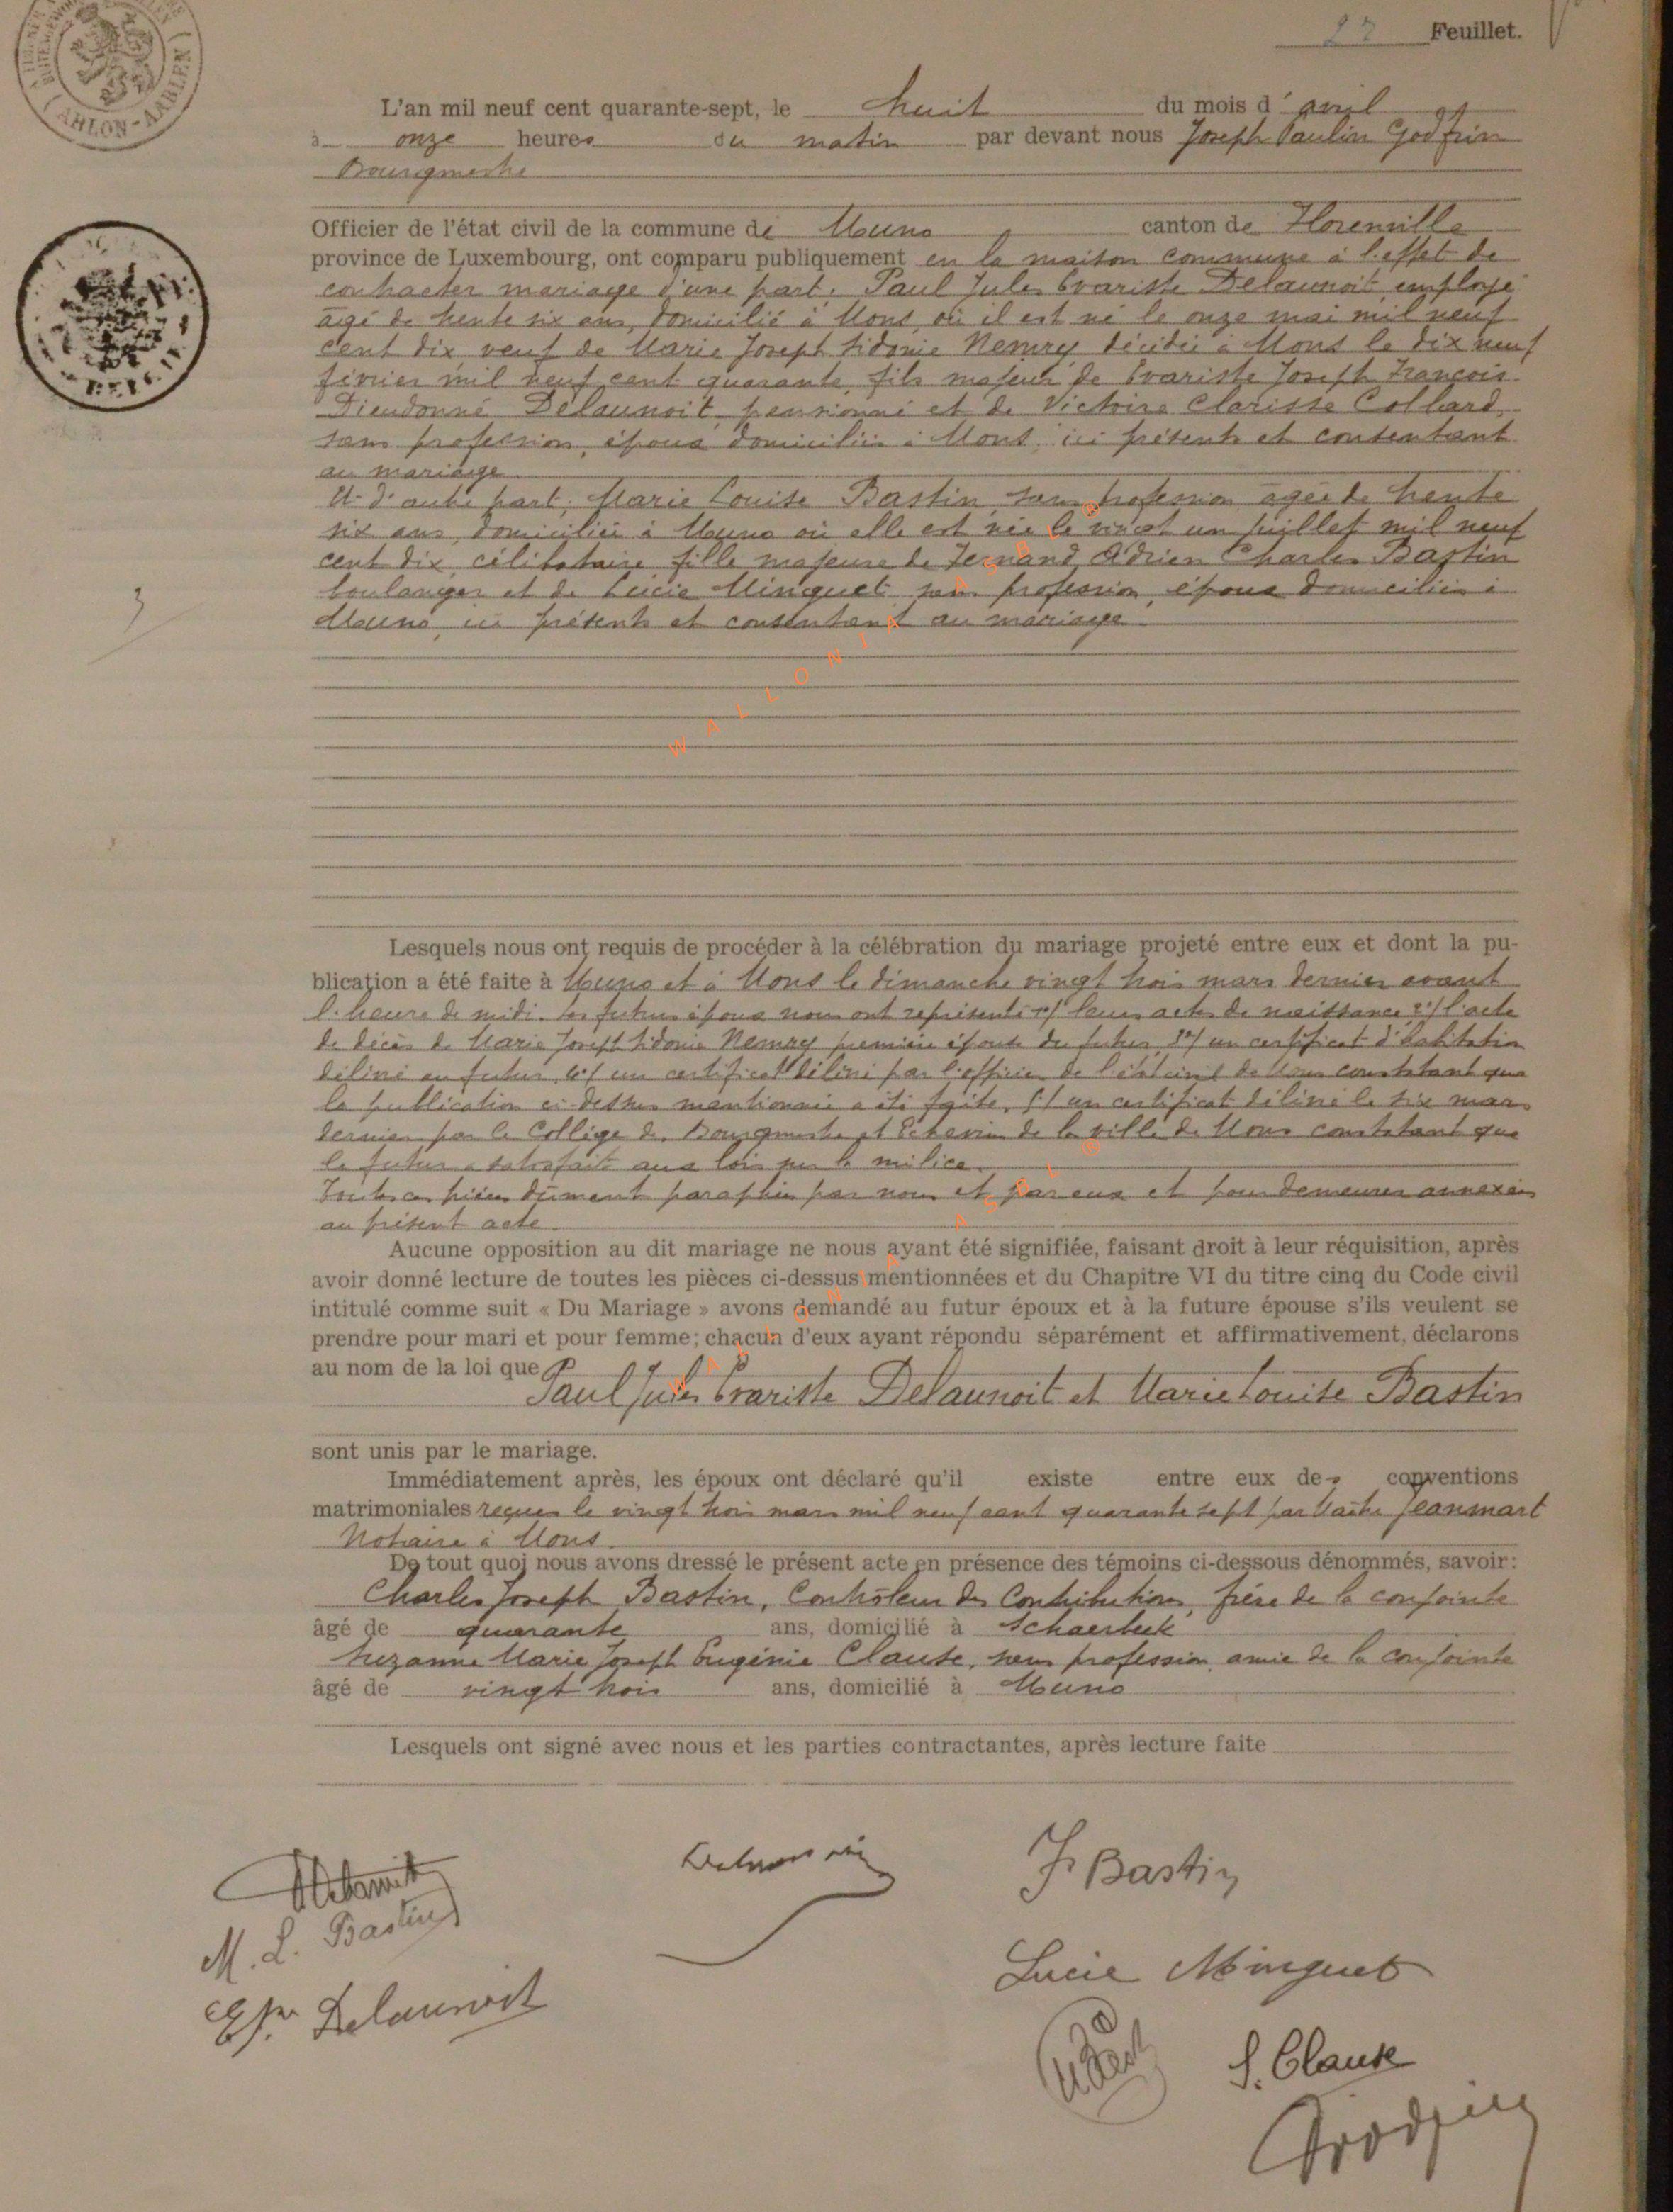 ARLON-AARLEN
22 Feuillet.
L'an mil neuf cent quarante-sept, le huit du mois d'avril
à onze heures du matin par devant nous Joseph Paulin Godfrin
Bourgmestre
Officier de l'état civil de la commune de Muno canton de Florenville
province de Luxembourg, ont comparu publiquement en la maison commune à l'effet de
contracter mariage d'une part, Paul Jules Evariste Delaunoit, employé
âgé de trente six ans, domicilié à Mons, où il est né le onze mai mil neuf
cent dix veuf de Marie Joseph Sidonie Nemry décédée à Mons le dix neuf
février mil neuf cent quarante, fils majeur de Evariste Joseph François
Dieudonné Delaunoit, pensionné et de Victoire Clarisse Collard,
sans profession, époux domiciliés à Mons, ici présents et consentant
au mariage
Et d'autre part, Marie Louise Bastin, sans profession âgée de trente
six ans, domiciliée à Muno où elle est née le vingt un juillet mil neuf
cent dix, célibataire fille majeure de Fernand Adrien Charles Bastin
boulanger et de Lucie Minguet sans profession, époux domiciliés à
Muno, ici présents et consentant au mariage.
3
WALLONIA ASBL ©
Lesquels nous ont requis de procéder à la célébration du mariage projeté entre eux et dont la pu-
blication a été faite à Muno et à Mons le dimanche vingt trois mars dernier avant
l'heure de midi. Les futurs époux nous ont représenté 1°/ leurs actes de naissance 2°/ l'acte
de décès de Marie Joseph Sidonie Nemry première épouse du futur, 3°/ un certificat d'habitation
délivré au futur, 4°/ un certificat délivré par l'officier de l'état civil de Mons constatant que
la publication ci-dessus mentionnée a été faite, 5°/ un certificat délivré le six mars
dernier par le Collège des Bourgmestre et Echevins de la ville de Mons constatant que
le futur a satisfait aux lois sur la milice.
Toutes ces pièces dûment paraphées par nous et par eux et pour demeurer annexées
au présent acte.
Aucune opposition au dit mariage ne nous ayant été signifiée, faisant droit à leur réquisition, après
avoir donné lecture de toutes les pièces ci-dessus mentionnées et du Chapitre VI du titre cinq du Code civil
intitulé comme suit « Du Mariage » avons demandé au futur époux et à la future épouse s'ils veulent se
prendre pour mari et pour femme; chacun d'eux ayant répondu séparément et affirmativement, déclarons
au nom de la loi que
Paul Jules Evariste Delaunoit et Marie Louise Bastin
WALLONIA ASBL ©
sont unis par le mariage.
Immédiatement après, les époux ont déclaré qu'il existe entre eux des conventions
matrimoniales reçues le vingt trois mars mil neuf cent quarante sept par Maître Jeanmart
Notaire à Mons.
De tout quoi nous avons dressé le présent acte en présence des témoins ci-dessous dénommés, savoir:
Charles Joseph Bastin, Contrôleur des Contributions, frère de la conjointe
âgé de quarante ans, domicilié à Schaerbeek
Suzanne Marie Joseph Eugénie Clause, sans profession, amie de la conjointe
âgé de vingt trois ans, domicilié à Muno
Lesquels ont signé avec nous et les parties contractantes, après lecture faite
F Bastin
M. L. Bastin
Lucie Minguet
Delaunoit
S. Clause
Godfrin